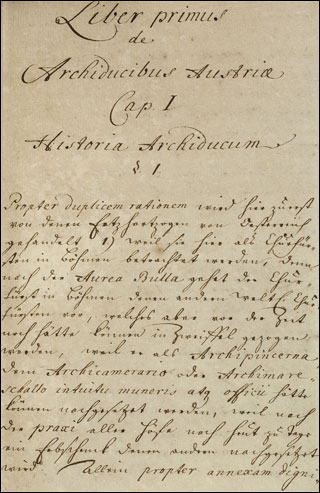 Liber primus
de
Archiducibus Austriæ
Cap I
Historia Archiducum
§ 1.
Propter duplicem rationem wird hier zuerst
von denen Ertzhertzogen von Oesterreich
gehandelt 1) weil sie hier als Churfür-
sten in Böhmen betrachtet werden, denn
nach der Aurea Bulla gehet der Chur-
fürst in Böhmen denen andern weltl. Chur
fürsten vor, welches aber vor der Zeit
noch hätte können in Zweiffel gezogen
werden, weil er als Archipincerna
dem Archicamerario oder Archimare-
schallo intuitu muneris atq officii hätte
können nachgesetzet werden, weil nach
der praxi aller Höfe noch heut zu Tage
ein Erbschenk denen andern nachgesetzet
wird. Allein propter annexam digni-